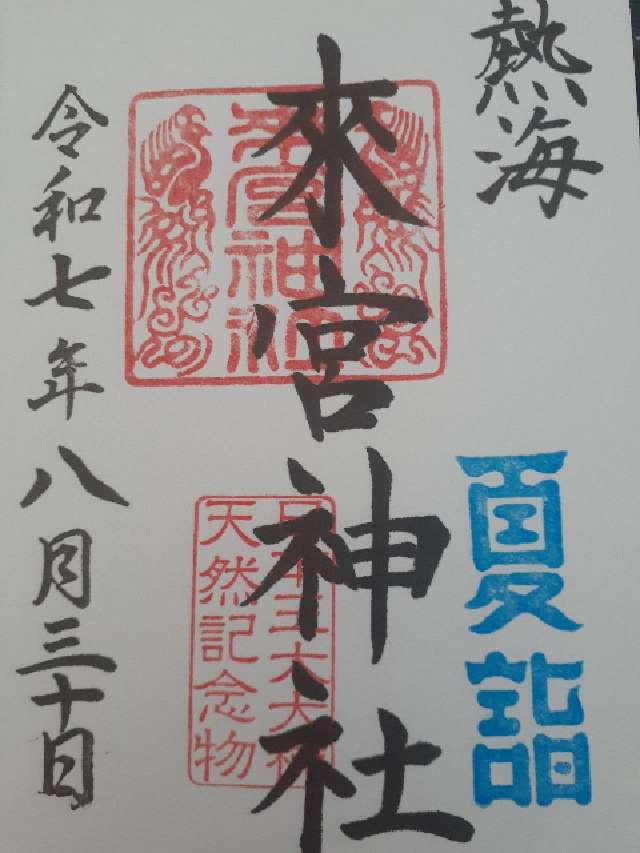 熱海
夏詣
來宮神社
來宮神社
天然記念物
令和七年八月三十日